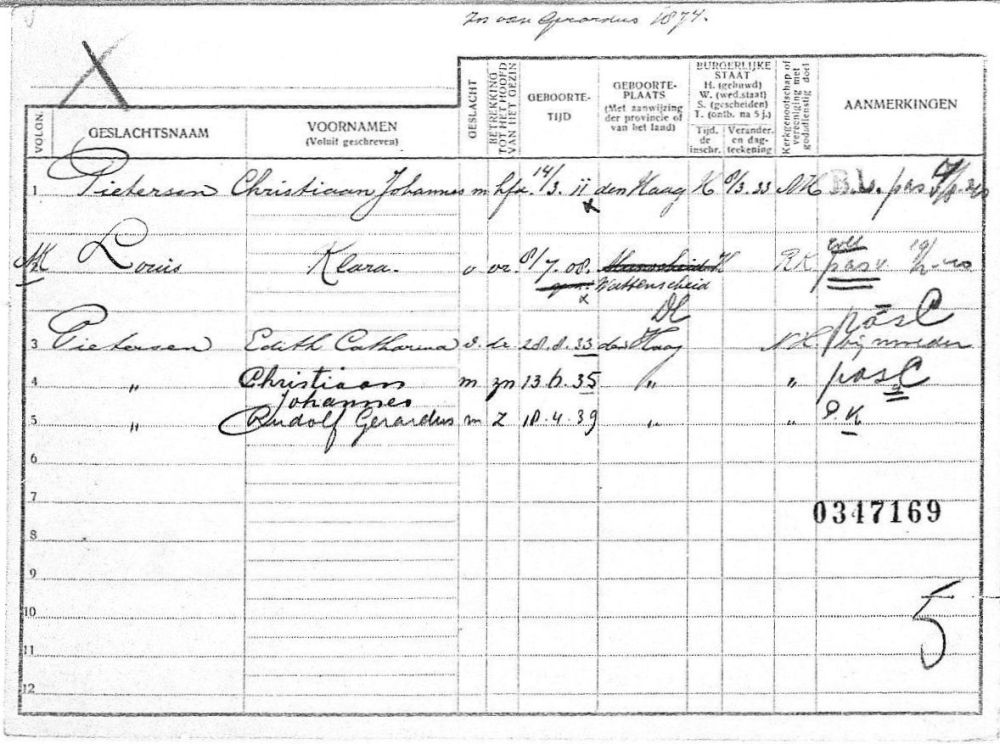 Zn van Gerardus 1874.
VOLGN. GESLACHTSNAAM VOORNAMEN (Voluit geschreven) GESLACHT BETREKKING TOT HET HOOFD VAN HET GEZIN GEBOORTE- TIJD GEBOORTE- PLAATS (Met aanwijzing der provincie of van het land) BURGERLIJKE STAAT H. (gehuwd) W. (wed.staat) S. (gescheiden) T. (ontb. na 5 j.) Tijd. de inschr. Verander. en dag- teekening Kerkgenootschap of vereeniging met godsdienstig doel AANMERKINGEN
1 Pietersen Christiaan Johannes m hfd. 14/3. 11 den Haag H 8/3. 33 NH pas
x
2 Louis Klara. v vr. 8/7. 08. H RK pas v.
x Wattenscheid
DC
pas C
3 Pietersen Edith Catharina d. dr. 28.8.33 den Haag NH bij moeder
4 " Christiaan m zn 13.6.35 " " pas C
Johannes
5 " Rudolf Gerardus m z 18.4.39 " " P.K
6
7
0347169
8
9
10
5
11
12